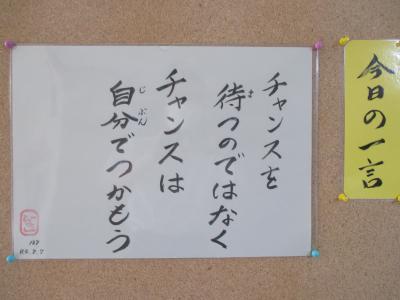 今日の一言
チャンスを
待つのではなく
チャンスは
自分でつかもう